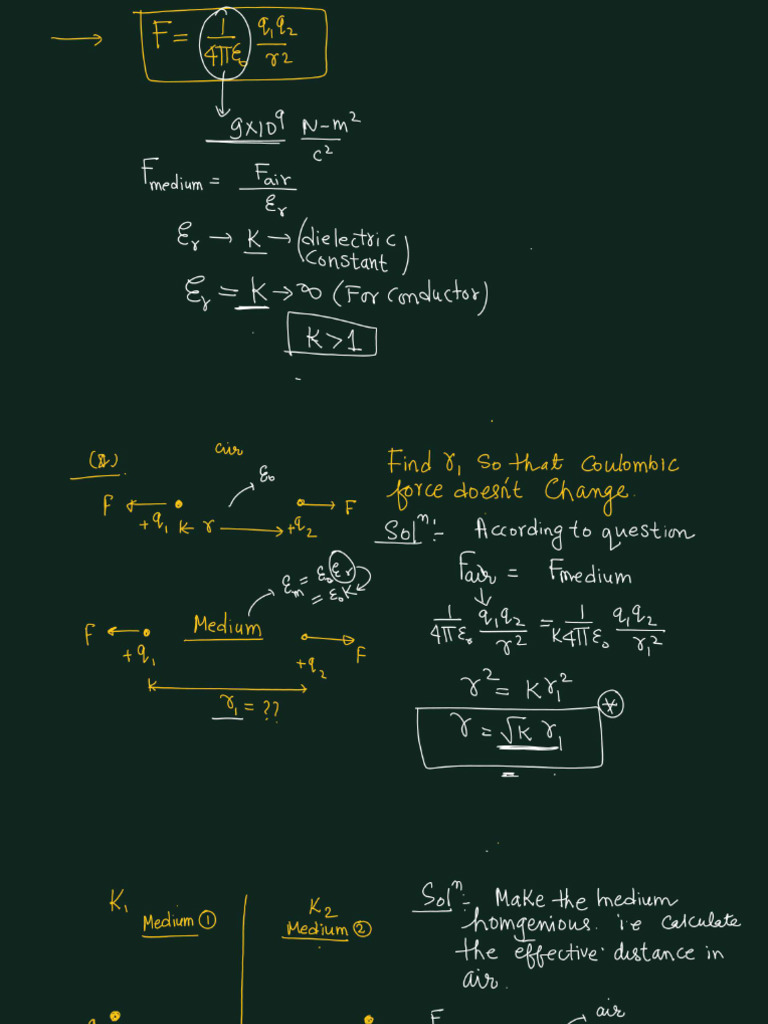 → F = 1/4πε₀ q₁q₂/r²
9×10⁹ N-m²/c²
Fmedium = Fair/εr
εr → K → (dielectric constant)
εr = K → ∞ (For conductor)
K > 1
(Q).
air
ε₀
F +q₁ r +q₂ F
Find r₁ so that coulombic
force doesn't change.
Solⁿ:- According to question
Fair = Fmedium
1/4πε₀ q₁q₂/r² = 1/K4πε₀ q₁q₂/r₁²
r² = Kr₁²
r = √K r₁
Medium
εm = ε₀εr
= ε₀K
F +q₁ +q₂ F
r₁ = ??
K₁ Medium ①
K₂ Medium ②
Solⁿ:- Make the medium
homgenious. i.e calculate
the effective distance in
air.
F air